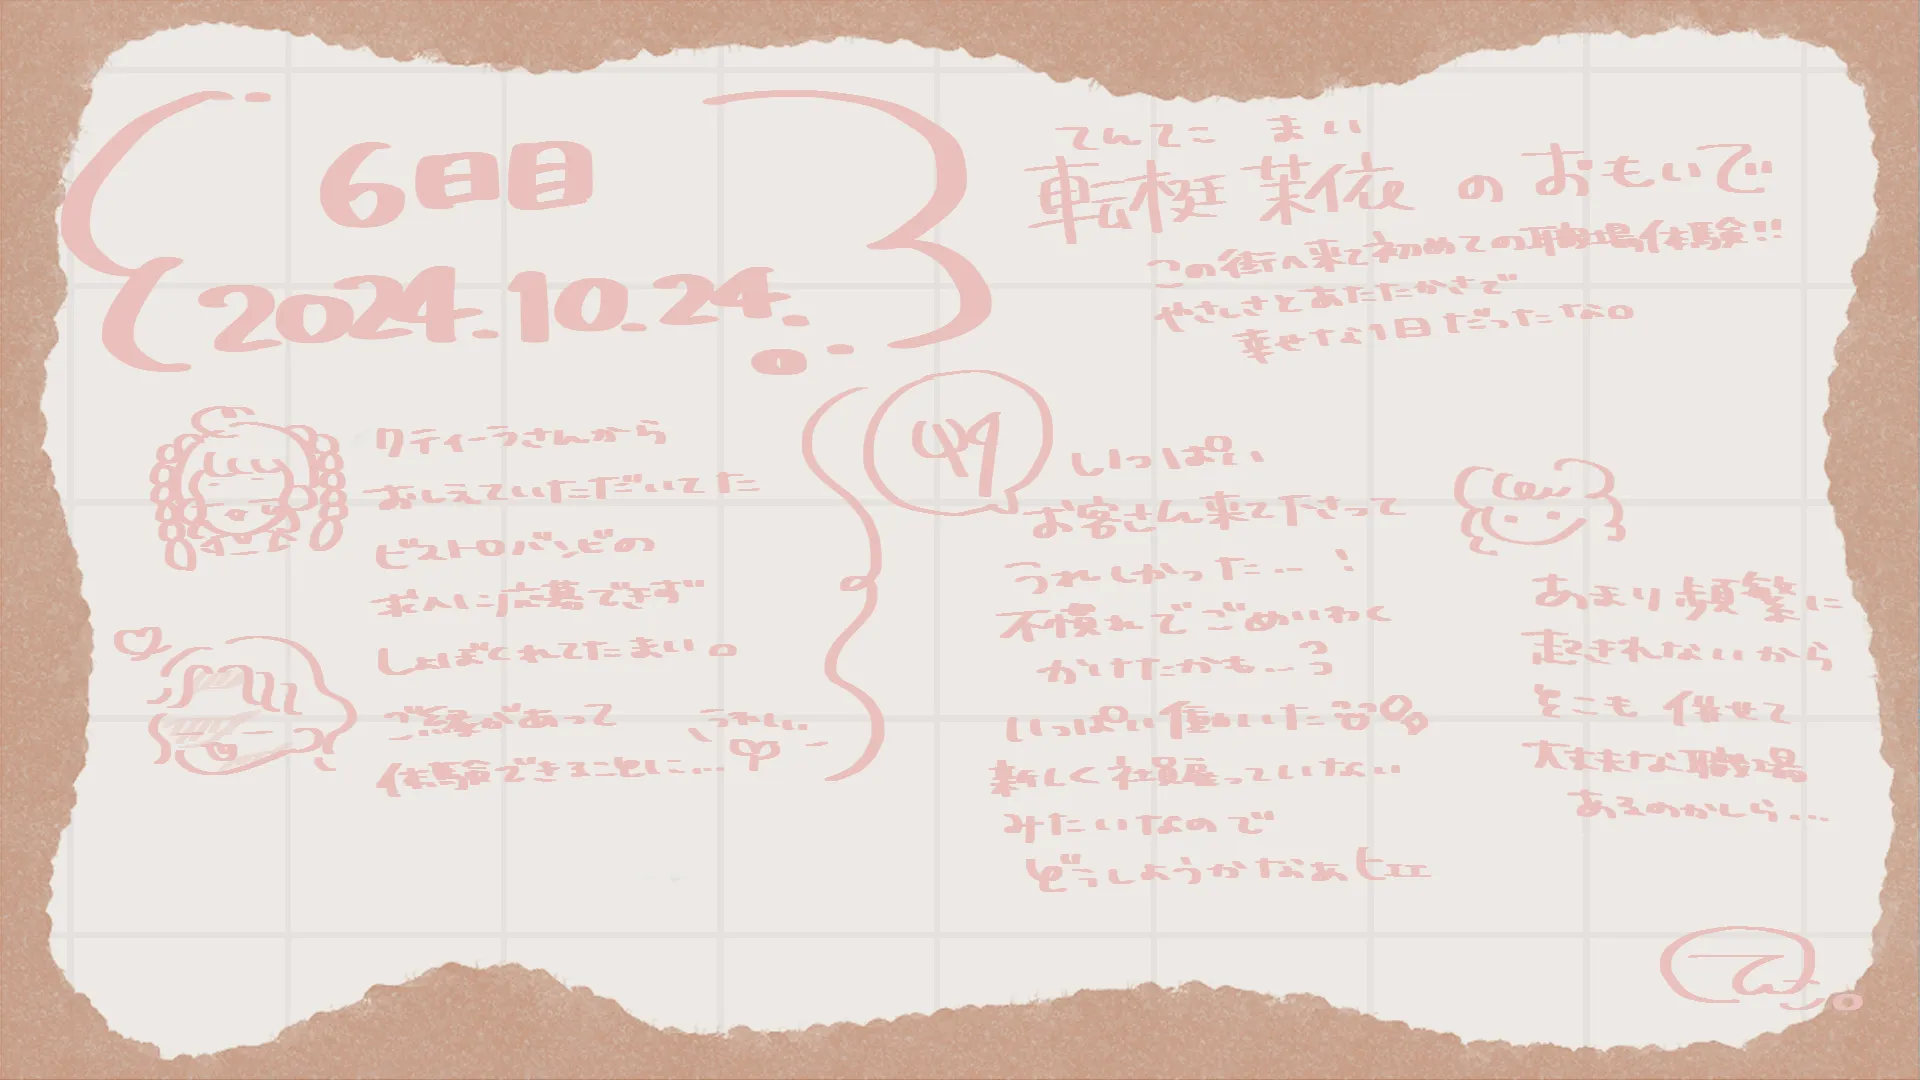 6日目
2024.10.24.
てんてこ まい
転梃 茉依 のおもいで
この街へ来て初めての職場体験!!
やさしさとあたたかさで
幸せな1日だったな。
クティーラさんから
おしえていただいてた
ビストロバンビの
求人に応募できず
しょぼくれてたまい。
ご縁があって
うれしい
体験できることに...
いっぱい
お客さん来て下さって
うれしかった...!
不慣れでごめいわく
かけたかも...
いっぱい働いた
新しく社員雇っていない
みたいなので
どうしようかなぁ
あまり頻繁に
起きれないから
そこも併せて
大丈夫な職場
あるのかしら...